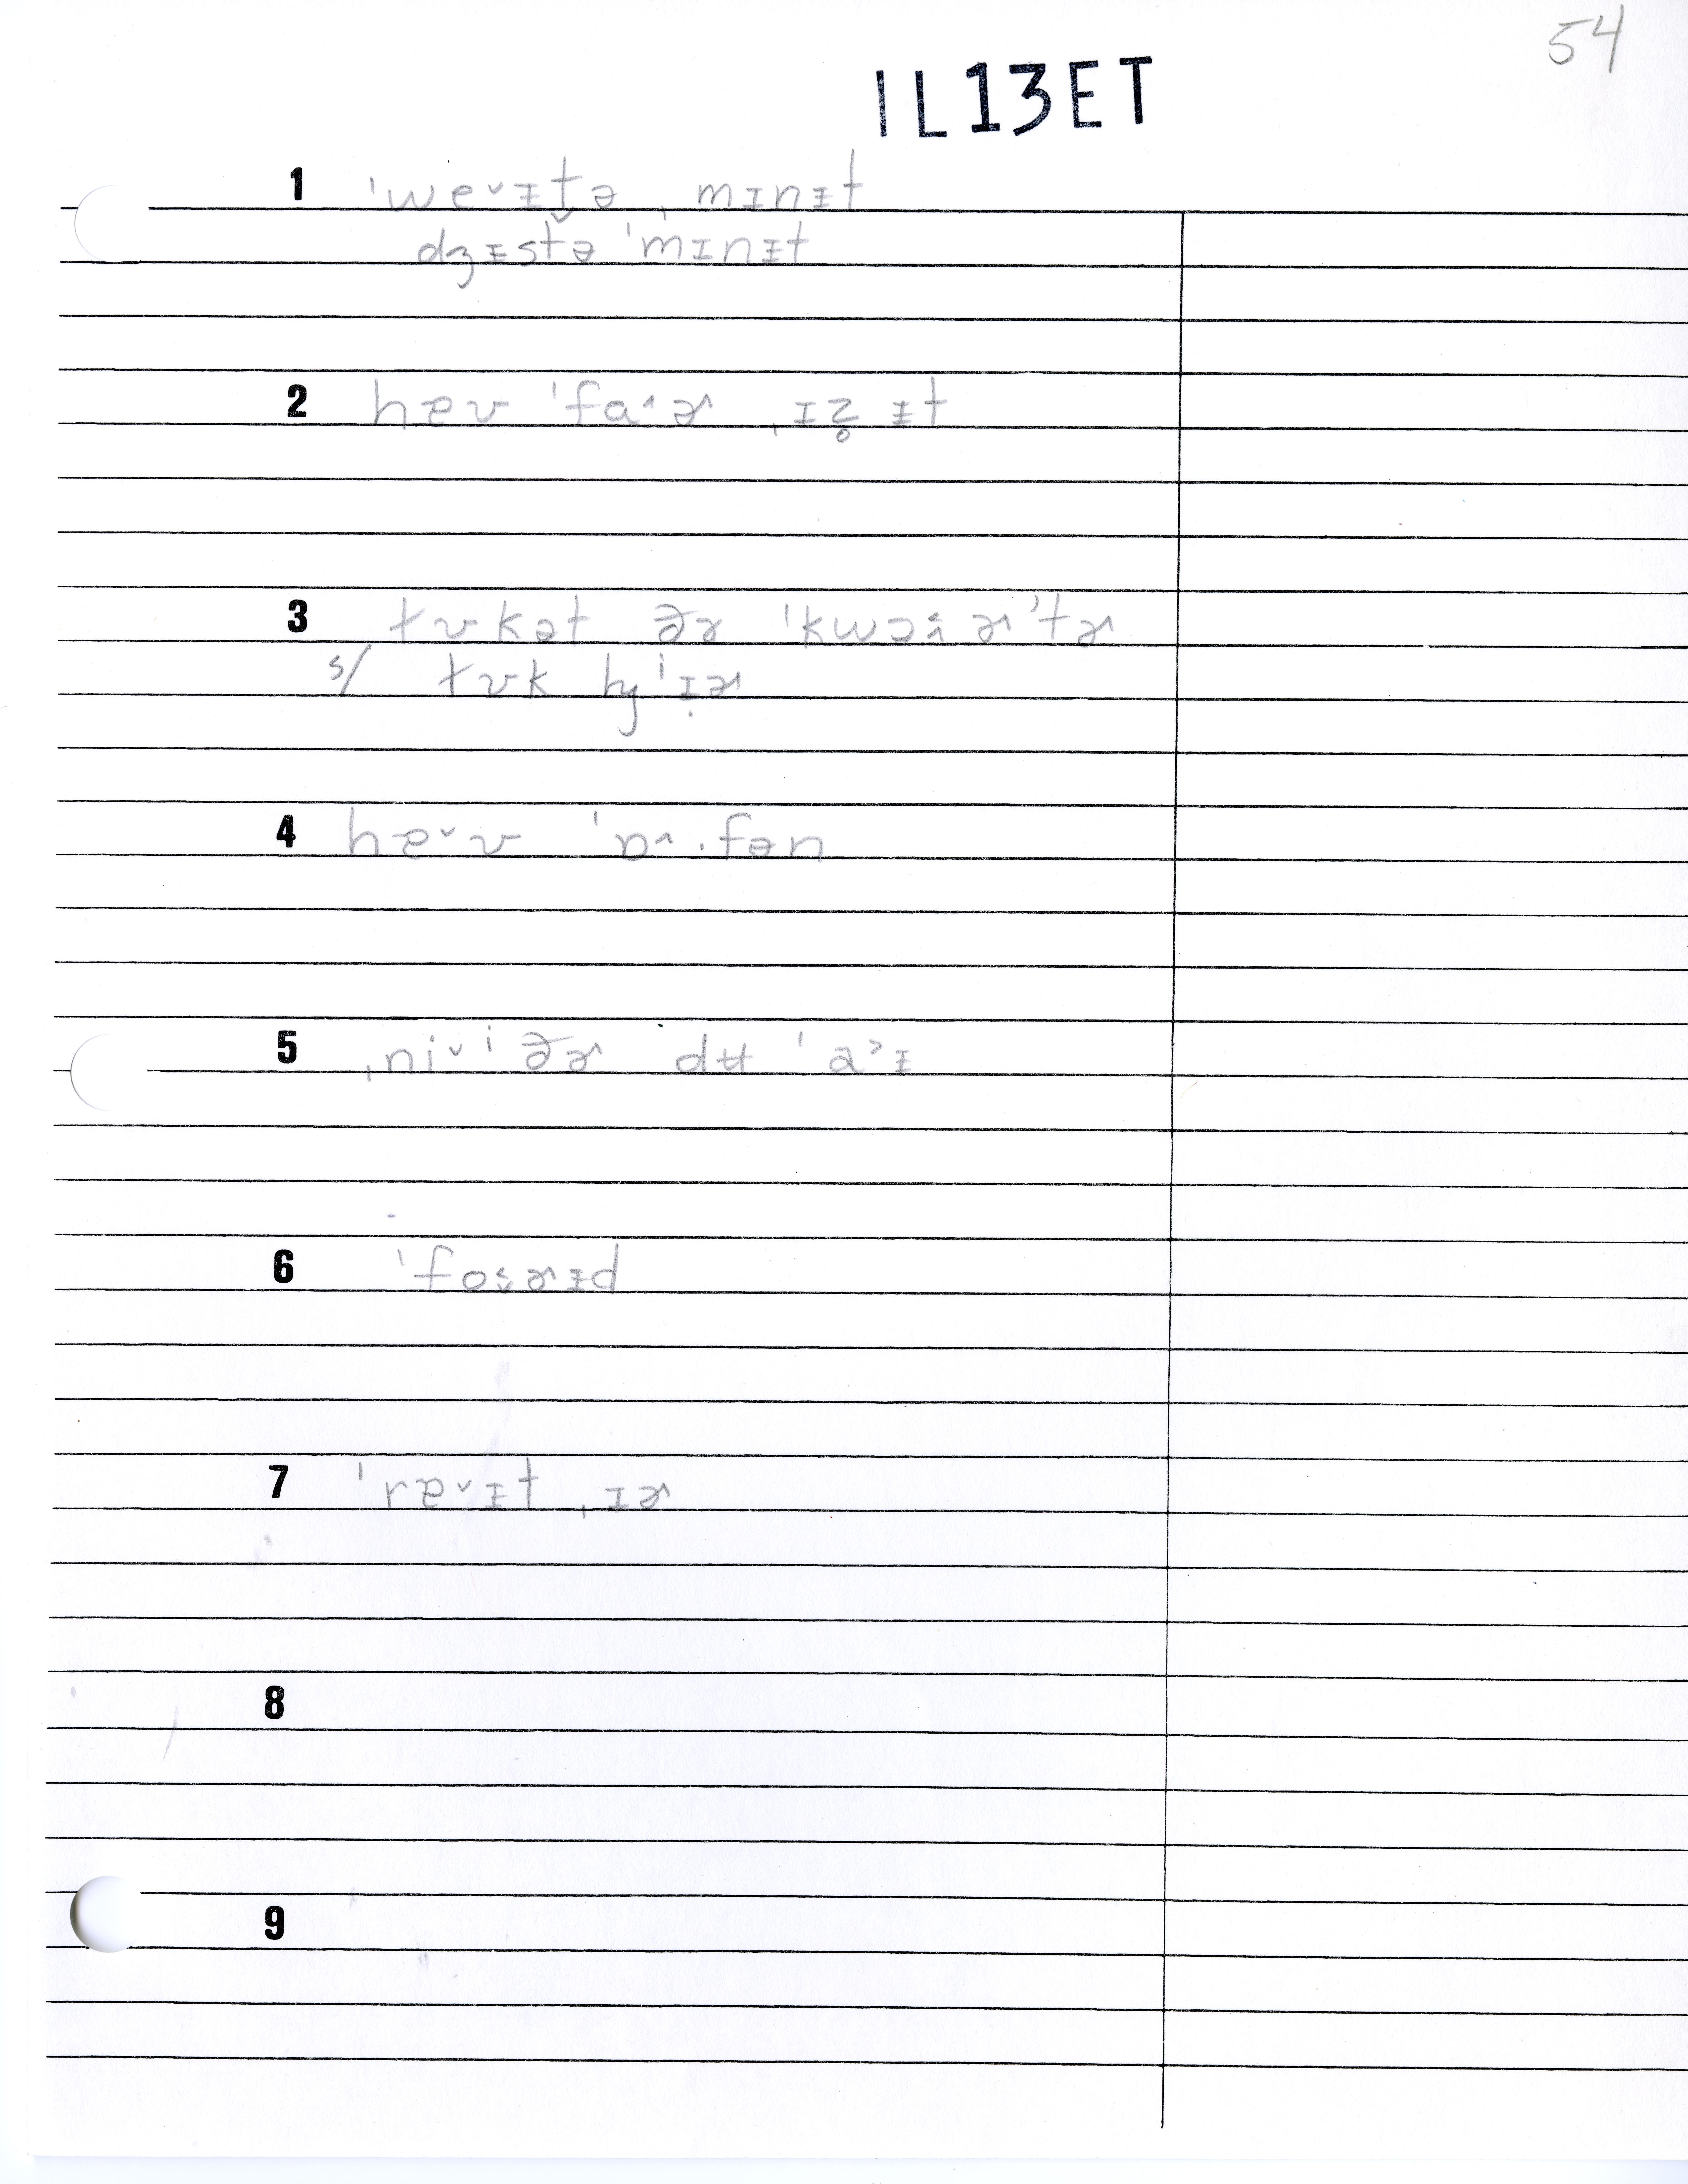 54
IL13ET
1 ˈweˇɪt̬ə ˌmɪnɪt
dʒɪstə ˈmɪnɪt
2 haʊ ˈfaˑɚ ˌɪz̥ ɪt
3 tʊkət ðɚ ˈkwɔɚˈtɚ
s/ tʊk hjˈɪɚ
4 hɐˇʊ ˈɒ˄·fən
5 ˌniˇi ðɚ dʉ ˈa˃ɪ
6 ˈfoɚɪd
7 ˈrɐˇɪt ˌɪɚ
8
9